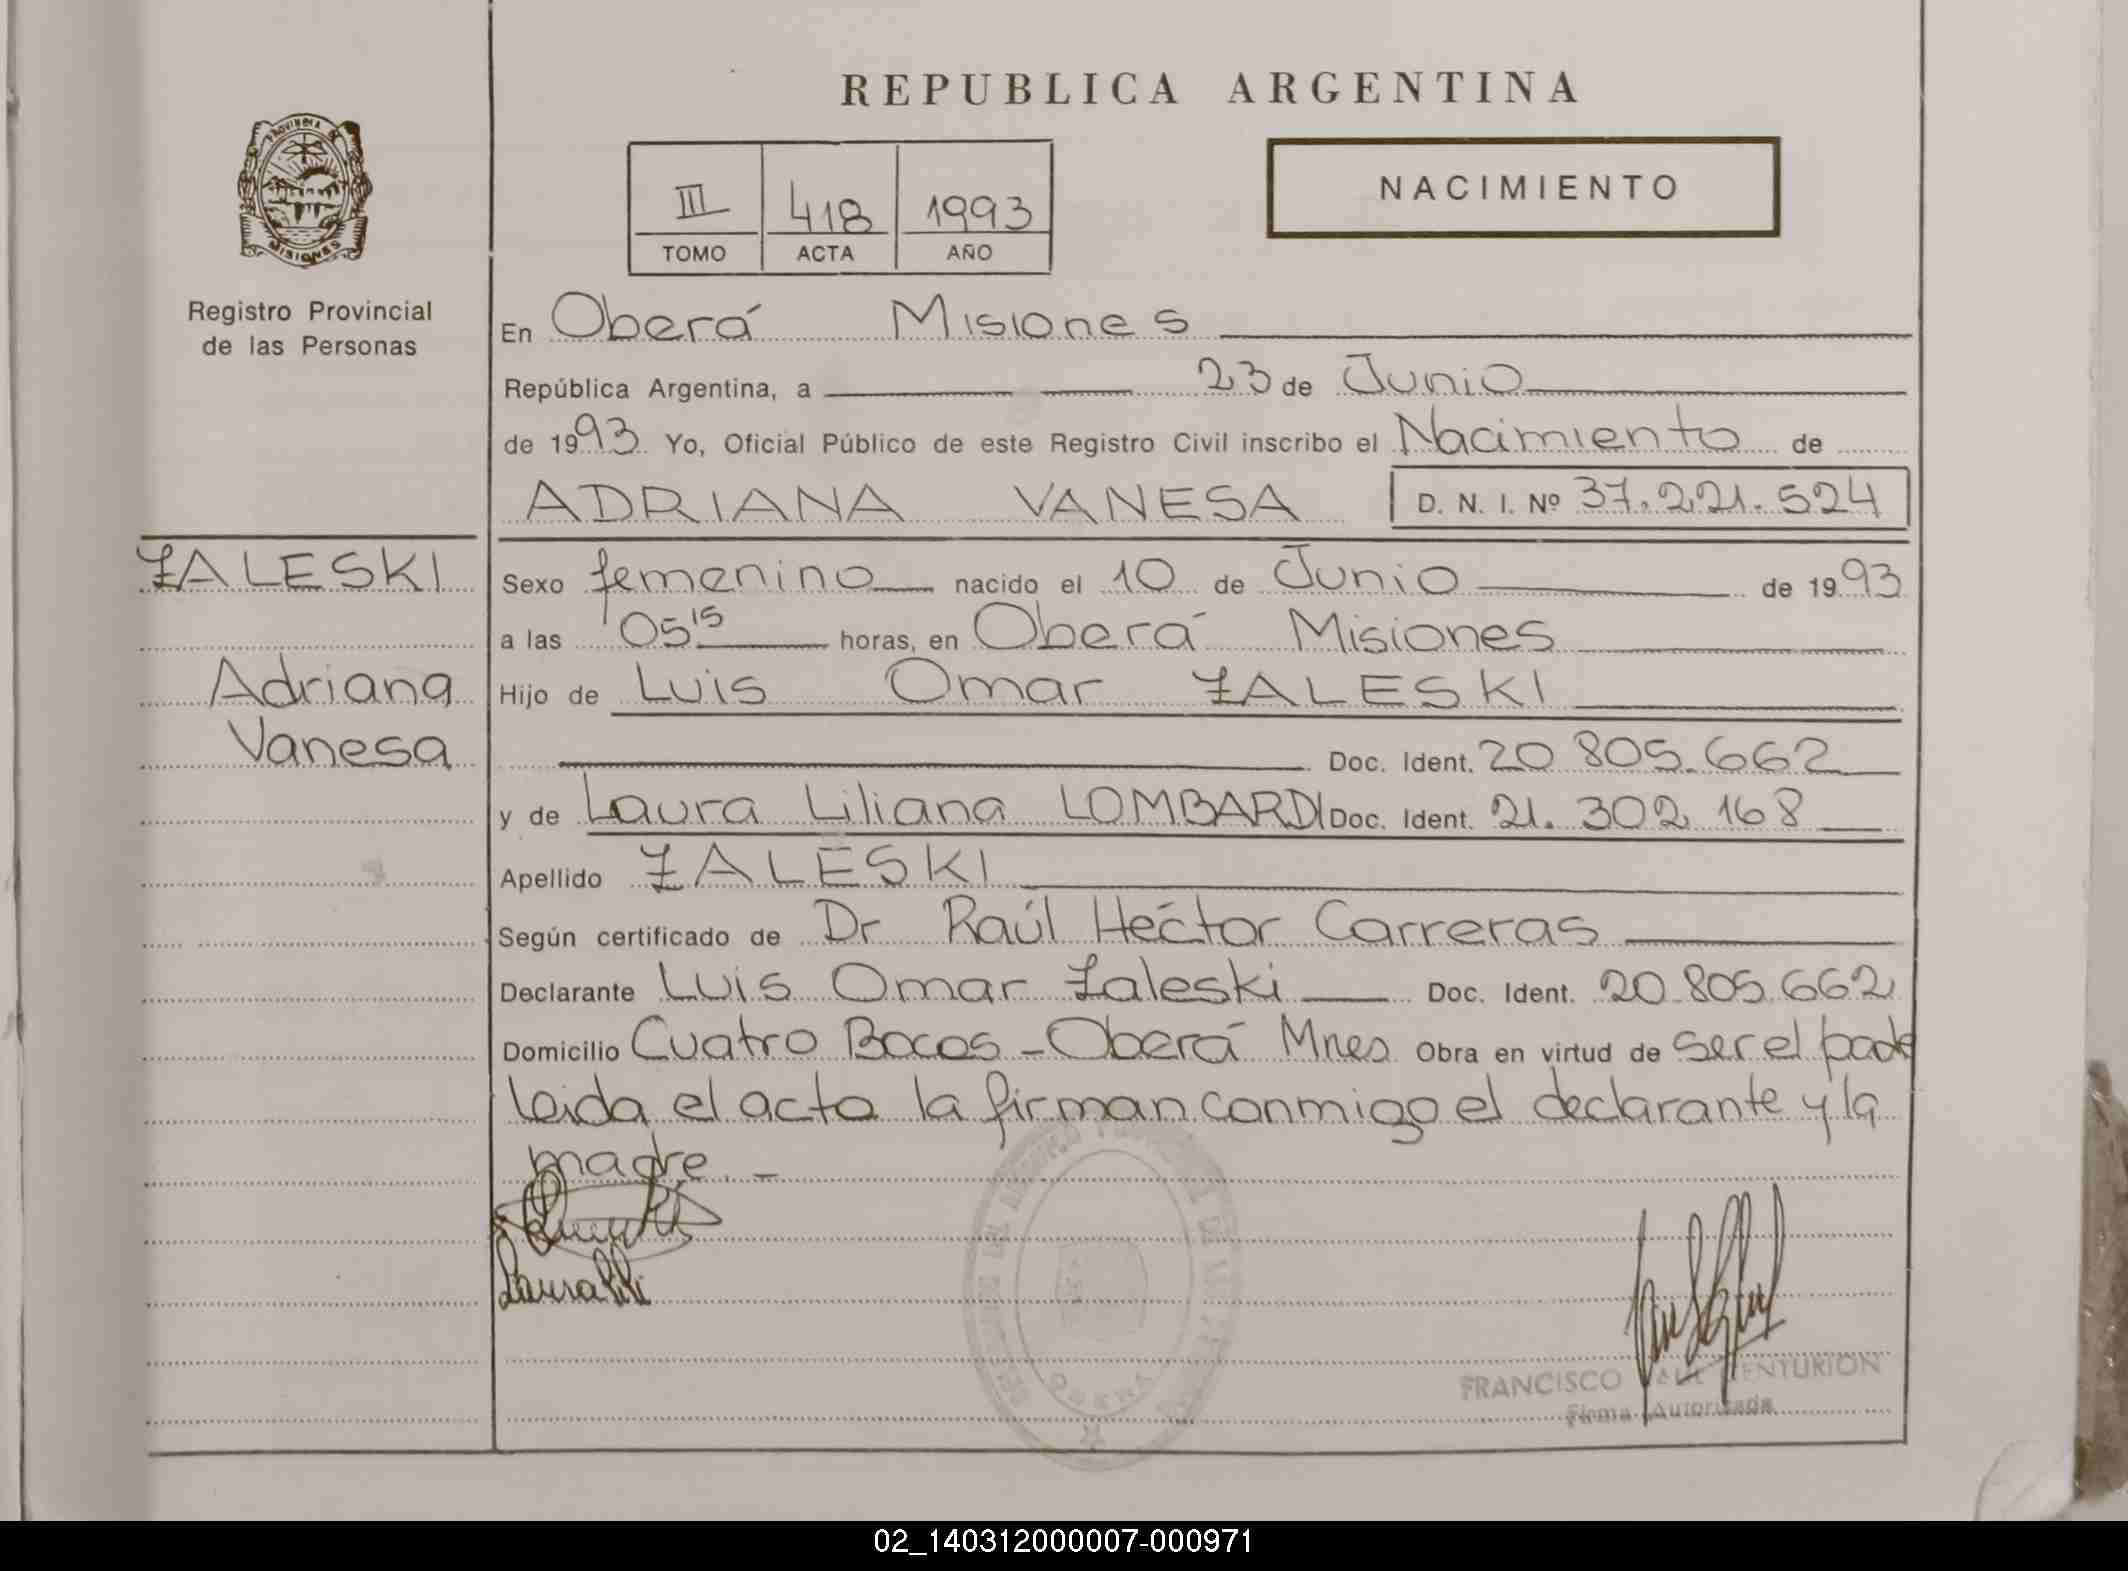 REPUBLICA ARGENTINA
PROVINCIA DE
MISIONES
Registro Provincial
de las Personas
III 418 1993
TOMO ACTA AÑO
NACIMIENTO
En Oberá Misiones
República Argentina, a 23 de Junio
de 1993 Yo, Oficial Público de este Registro Civil inscribo el Nacimiento de
ADRIANA VANESA D. N. I. Nº 37.221.524
ZALESKI
Adriana
Vanesa
Sexo femenino nacido el 10 de Junio de 1993
a las 05 15 horas, en Oberá Misiones
Hijo de Luis Omar ZALESKI
Doc. Ident. 20 805.662
y de Laura Liliana LOMBARDI Doc. Ident. 21. 302 168
Apellido ZALESKI
Según certificado de Dr Raúl Héctor Carreras
Declarante Luis Omar Zaleski Doc. Ident. 20.805.662
Domicilio Cuatro Bocas - Oberá Mnes Obra en virtud de ser el padre
leida el acta la firman conmigo el declarante y la
madre. -
FRANCISCO CENTURION
Firma Autorizada
OBERA
02_140312000007-000971